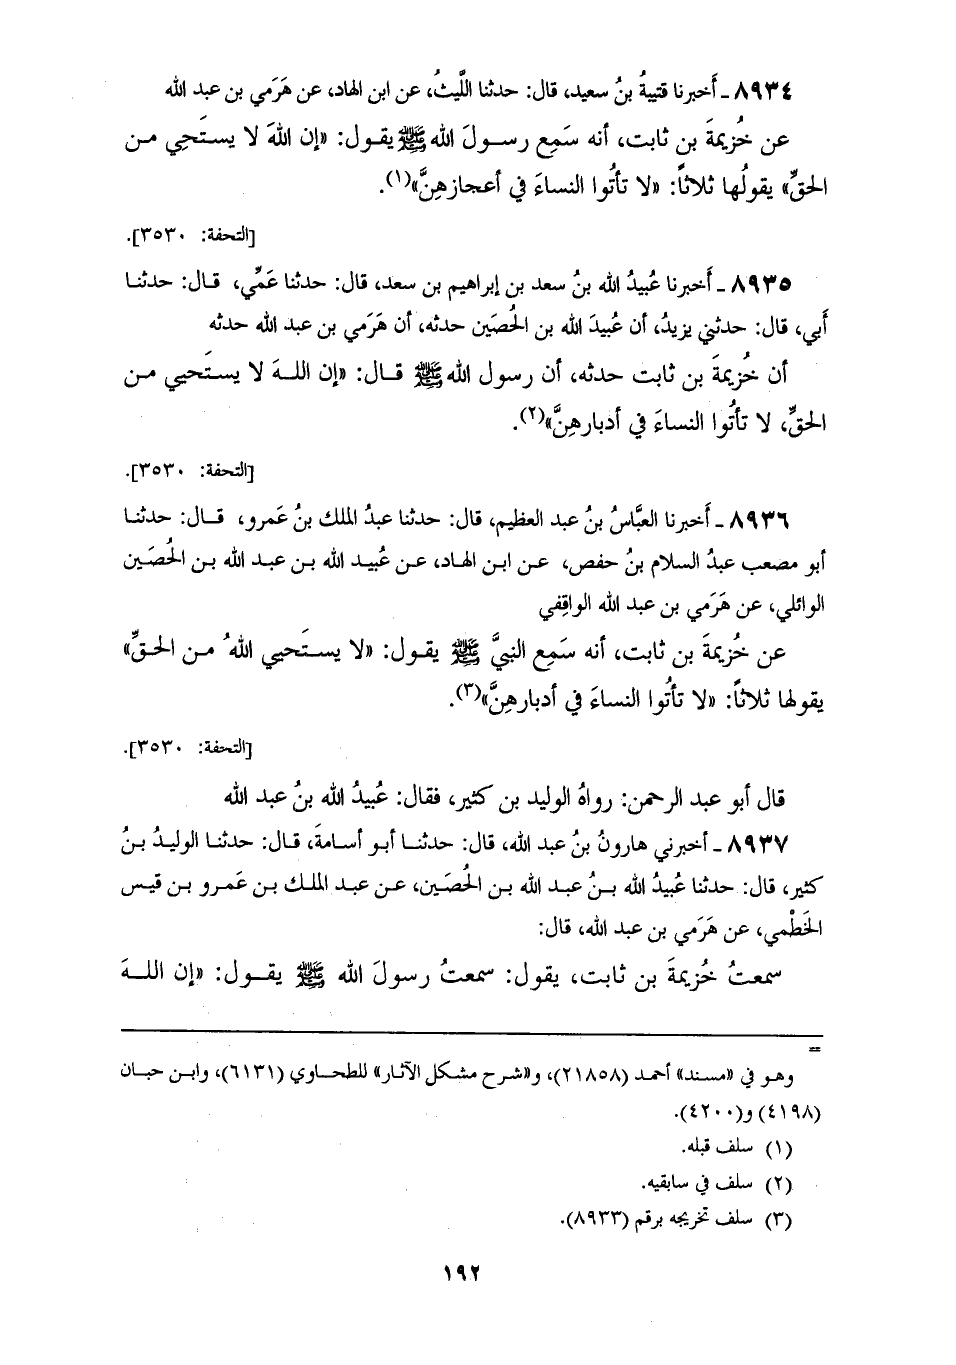 ٨٩٣٤ ـ أَخبرنا قتيبةُ بنُ سعيد، قال: حدثنا اللَّيثُ، عن ابن الهاد، عن هَرَمي بن عبد الله
عن خُزيمةَ بن ثابت، أنه سَمِع رسولَ الله ﷺ يقول: «إن اللهَ لا يستَحيِي من
الحقِّ» يقولُها ثلاثاً: «لا تأتُوا النساءَ في أعجازهِنَّ»(١).
[التحفة: ٣٥٣٠].
٨٩٣٥ ـ أَخبرنا عُبيدُ الله بنُ سعد بن إبراهيم بن سعد، قال: حدثنا عَمِّي، قال: حدثنا
أَبي، قال: حدثني يزيدُ، أن عُبيدَ الله بن الحُصَين حدثه، أن هَرَمي بن عبد الله حدثه
أن خُزيمةَ بن ثابت حدثه، أن رسول الله ﷺ قال: «إن اللهَ لا يستَحيي من
الحقِّ، لا تأتُوا النساءَ في أدبارهِنَّ»(٢).
[التحفة: ٣٥٣٠].
٨٩٣٦ ـ أَخبرنا العبَّاسُ بنُ عبد العظيم، قال: حدثنا عبدُ الملك بنُ عَمرو، قال: حدثنا
أبو مصعب عبدُ السلام بنُ حفص، عن ابن الهاد، عن عُبيد الله بن عبد الله بن الحُصَين
الوائلي، عن هَرَمي بن عبد الله الواقِفي
عن خُزيمةَ بن ثابت، أنه سَمِع النبيَّ ﷺ يقول: «لا يستَحيي اللهُ من الحقِّ»
يقولها ثلاثاً: «لا تأتُوا النساءَ في أدبارهِنَّ»(٣).
[التحفة: ٣٥٣٠].
قال أبو عبد الرحمن: رواهُ الوليد بن كثير، فقال: عُبيدُ الله بنُ عبد الله
٨٩٣٧ ـ أخبرني هارونُ بنُ عبد الله، قال: حدثنا أبو أسامةَ، قال: حدثنا الوليدُ بنُ
كثير، قال: حدثنا عُبيدُ الله بنُ عبد الله بن الحُصَين، عن عبد الملك بن عَمرو بن قيس
الخَطْمي، عن هَرَمي بن عبد الله، قال:
سمعتُ خُزيمةَ بن ثابت، يقول: سمعتُ رسولَ الله ﷺ يقول: «إن اللهَ
=
وهو في «مسند» أحمد (٢١٨٥٨)، و«شرح مشكل الآثار» للطحاوي (٦١٣١)، وابن حبان
(٤١٩٨) و(٤٢٠٠).
(١) سلف قبله.
(٢) سلف في سابقيه.
(٣) سلف تخريجه برقم (٨٩٣٣).
١٩٢